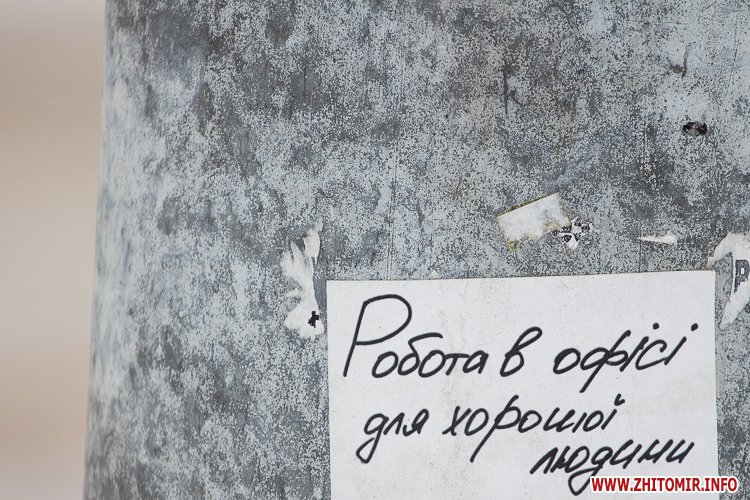 Робота в офісі
для хорошої
людини
WWW.ZHITOMIR.INFO